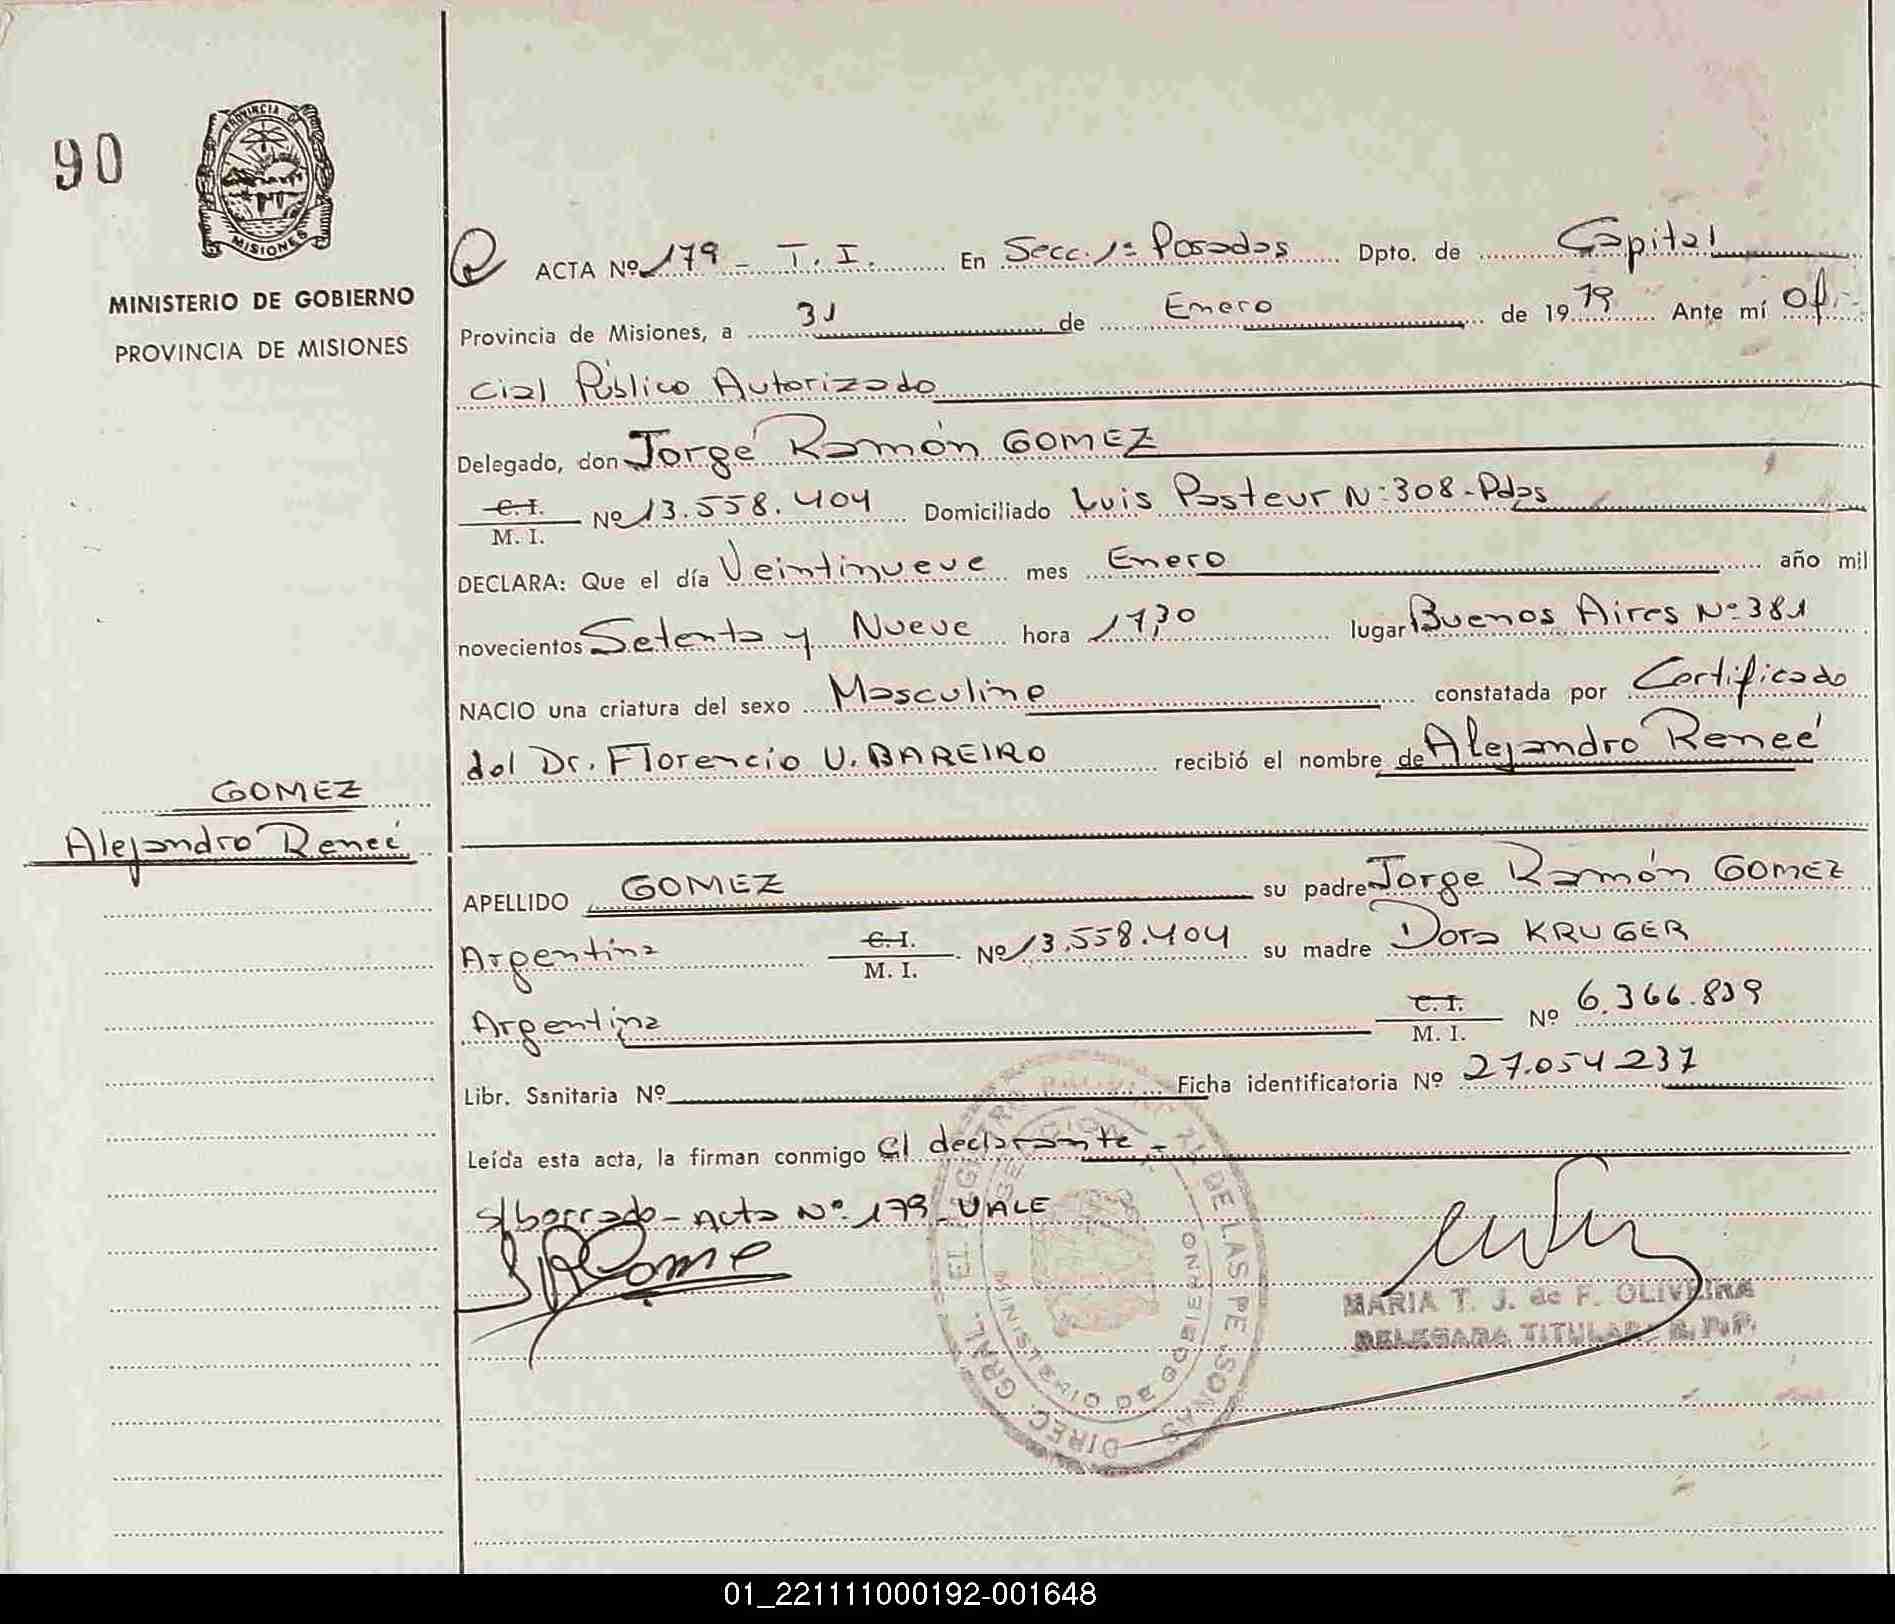 90
PROVINCIA DE
MISIONES
MINISTERIO DE GOBIERNO
PROVINCIA DE MISIONES
GOMEZ
Alejandro Reneé
ACTA Nº 179 - T. I. En Secc. 1ª Posadas Dpto. de Capital
Provincia de Misiones, a 31 de Enero de 1979 Ante mí Ofi-
cial Público Autorizado
Delegado, don Jorge Ramón GOMEZ
C.I. M. I. Nº 13.558.404 Domiciliado Luis Pasteur Nº 308-Pdas
DECLARA: Que el día Veintinueve mes Enero año mil
novecientos Setenta y Nueve hora 17,30 lugar Buenos Aires Nº 381
NACIO una criatura del sexo Masculino constatada por Certificado
del Dr. Florencio U. BAREIRO recibió el nombre de Alejandro Reneé
APELLIDO GOMEZ su padre Jorge Ramón GOMEZ
Argentina C.I. M. I. Nº 13.558.404 su madre Dora KRUGER
Argentina C.I. M. I. Nº 6.366.839
Libr. Sanitaria Nº Ficha identificatoria Nº 27.054.237
Leída esta acta, la firman conmigo el declarante -
s/borrado - Acta Nº 179 - VALE
MARIA T. J. de F. OLIVEIRA
DELEGADA TITULAR R. P. P.
DIREC. GRAL. DE LAS PERSONAS
MINISTERIO DE GOBIERNO
01_221111000192-001648